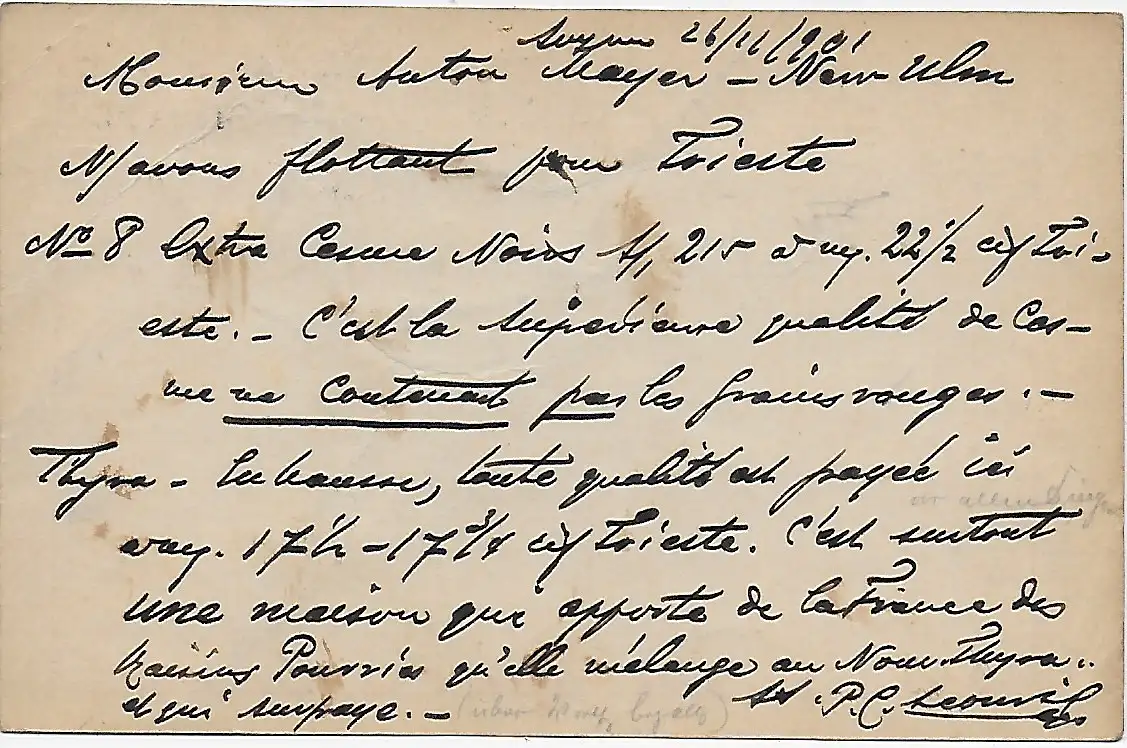 26/11/901
Monsieur Anton Mayer - Neu-Ulm
N/avons flottant pour Trieste
No 8 Extra Cesme Noirs 215 22 1/2 cif Tri-
este. - C'est la supérieure qualité de Ces-
me ne contenant pas les grains rouges. -
Thyra - En hausse, toute qualité est payée ici
17 1/2 - 17 3/4 cif Trieste. C'est surtout
une maison qui apporte de la France des
Raisins Pourris qu'elle mélange au Nom Thyra..
et qui surpaye. -